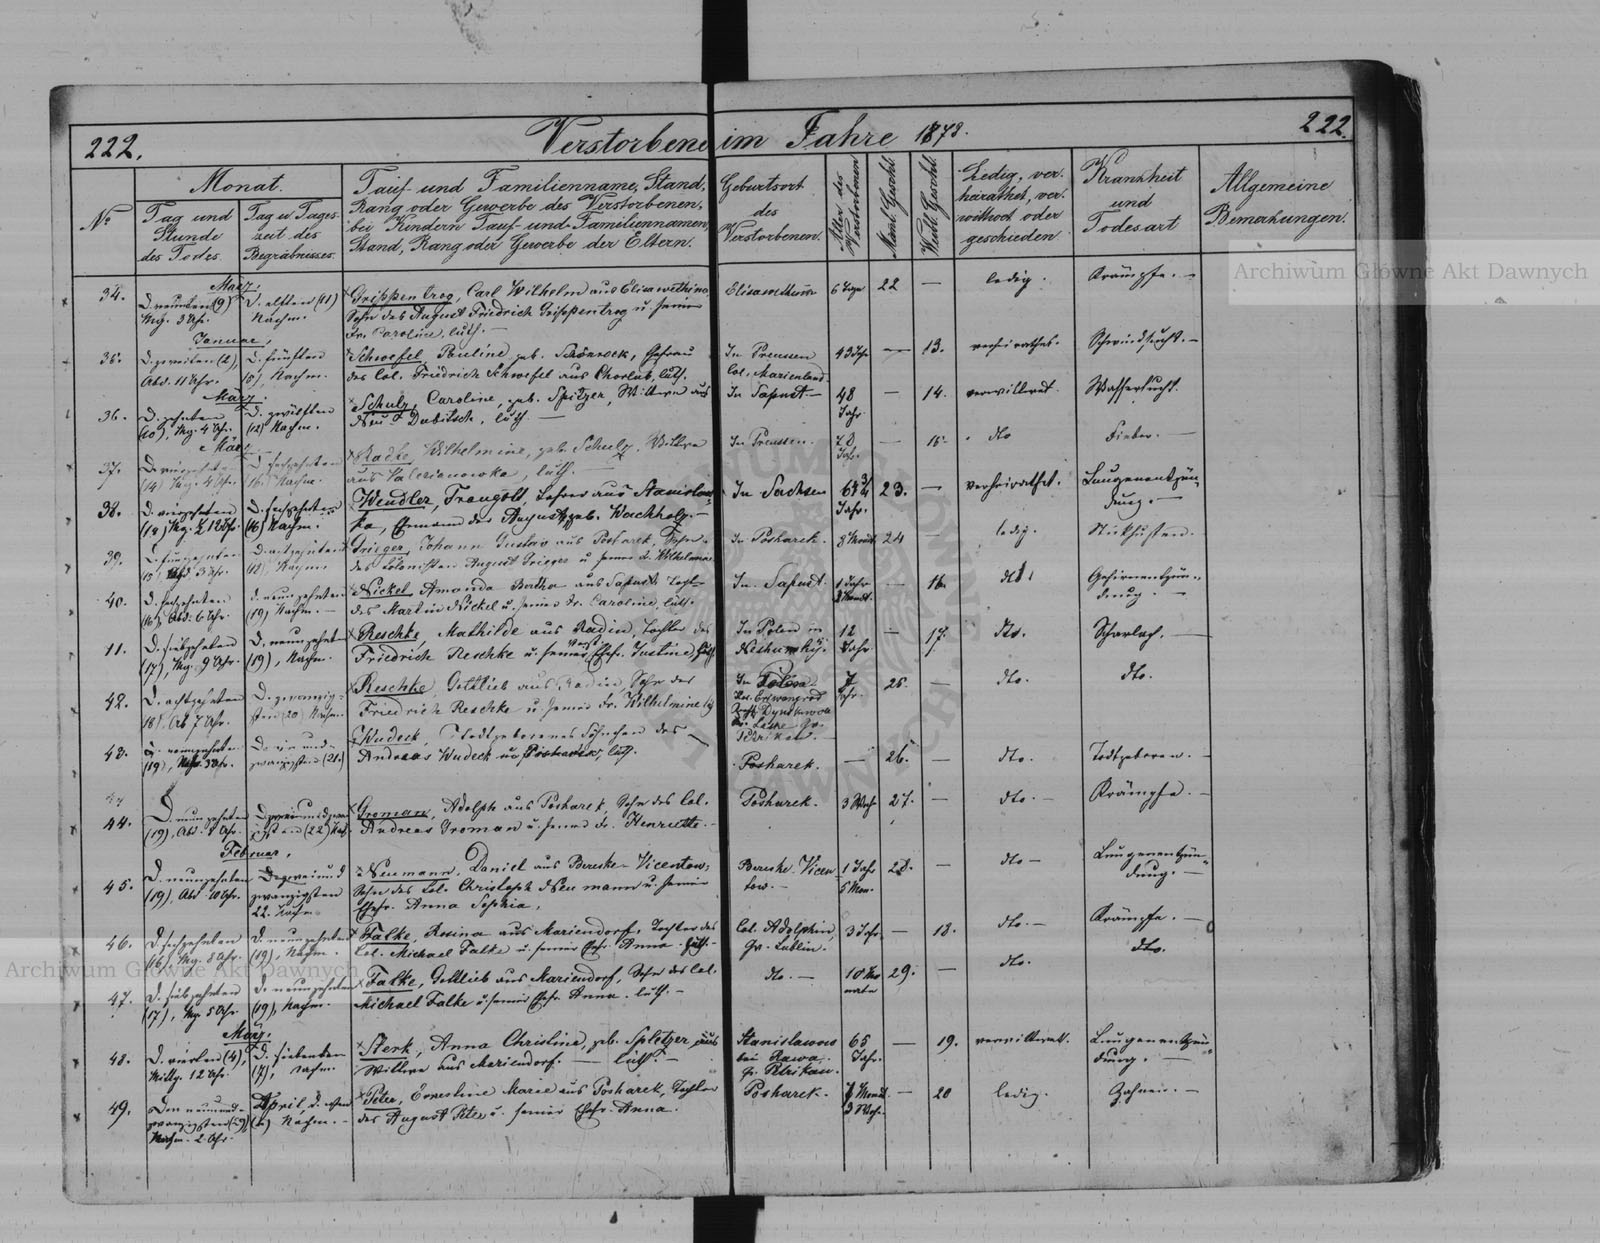 222.
Verstorbene im Jahre 1878.
222.
No
Monat.
Tag und
Stunde
des Todes.
Tag u. Tages-
zeit des
Begräbnisses.
Tauf- und Familienname, Stand,
Rang oder Gewerbe des Verstorbenen,
bei Kindern Tauf- und Familiennamen,
Stand, Rang oder Gewerbe der Eltern.
Geburtsort
des
Verstorbenen.
Alter des
Verstorbenen
Männl. Geschl.
Weibl. Geschl.
Ledig, ver-
heirathet, ver-
wittwet oder
geschieden
Krankheit
und
Todesart
Allgemeine
Bemerkungen.
Archiwum Główne Akt Dawnych
34.
März.
D. neunten (9)
Mrg. 3 Uhr.
D. elften (11)
Nachm.
Grippentrog, Carl Wilhelm aus Elisawethina
Sohn des August Friedrich Grippentrog u. seiner
Fr. Caroline, luth. —
6 Tage
22
—
ledig.
Krämpfe. —
35.
Januar,
D. zweiten (2),
Abd. 11 Uhr.
D. fünften
Nachm.
Schwefel, Pauline, geb. Ehefrau
des Col. Friedrich Schwefel aus luth.
In Preussen
Col. Marienland
43 Jhr.
—
13.
verheirathet.
Schwindsucht. —
36.
März.
D. zehnten
(10), Mg. 4 Uhr.
D. zwölften
(12) Nachm.
Schulz, Caroline, geb. Spitzer, Wittwe aus
Neu Dubitsch, luth. —
In Sapust —
48
Jahr
—
14.
verwittwet.
Wassersucht.
37.
März
D. vierzehnten
(14) Mrg. 4 Uhr.
D. sechzehnten
(16) Nachm.
Radke, Wilhelmine, geb. Schulz, Wittwe
aus Valerianowka, luth. —
In Preussen.
—
15.
dto
Fieber. —
38.
D. vierzehnten
D. sechzehnten
(16) Nachm.
Wendler, Traugott, Lehrer aus Stanislow-
ka, Ehemann der August. geb. Wachholz. —
In Sachsen
Jahr.
23.
—
verheirathet.
Lungenentzün-
dung. —
39.
D. fünfzehnten
D. achtzehnten
(18), Nachm.
Grieger, Johann Gustav aus Posharek, Sohn
des Colonisten August Grieger u. seiner Fr. Wilhelmine
In Posharek.
8 Monat
24
—
ledig.
Stickhusten.
40.
D. sechzehnten
(16), Abd. 6 Uhr.
D. neunzehnten
(19) Nachm. —
Nickel, Amanda Bertha aus Sapust, Tocht.
des Martin Nickel u. seiner Fr. Caroline, luth.
In Sapust.
1 Jahr
—
16.
dto.
Gehirnentzün-
dung. —
11.
D. siebzehnten
(17), Mrg. 9 Uhr.
D. neunzehnten
(19), Nachm.
Reschke, Mathilde aus Radin, Tochter des
Friedrich Reschke u. seiner Ehefr. Justine, luth.
In Polen in
12
Jahr
—
17.
dto.
Scharlach. —
42.
D. achtzehnten
(18), Ab 7 Uhr.
D. zwanzig-
sten (20) Nachm.
Reschke, Gottlieb aus Radin, Sohn des
Friedrich Reschke u. seiner Fr. Wilhelmine
In
Jahr.
25.
—
dto.
dto.
43.
D. neunzehnten
(19), 3 Uhr.
D. ein und
zwanzigsten (21.)
Wudeck, Todtgeborenes Söhnchen des —
Andreas Wudeck aus Posharek, luth.
Posharek.
—
26.
—
dto.
Todtgeboren. —
44.
D. neunzehnten
(19), Abd. Uhr.
Groman, Adolph aus Posharek, Sohn des Col.
Andreas Groman u. seiner Fr. Henriette. —
Posharek.
27.
—
dto. —
Krämpfe. —
45.
Februar,
D. neunzehnten
(19), Abd. 10 Uhr.
D. zwei und
zwanzigsten
22. Nachm.
Neumann, Daniel aus Bereske-Vicentow,
Sohn des Col. Christoph Neumann u. seiner
Ehefr. Anna Sophia,
Bereske-Vicen
tow. —
1 Jahr
5 Mon.
28.
—
dto —
Lungenentzün-
dung. —
46.
D. sechzehnten
(16), Mrg. 5 Uhr.
D. neunzehnten
(19), Nachm.
Falke, Rosina aus Mariendorf, Tochter des
Col. Michael Falke u. seiner Ehefr. Anna. luth. —
Col. Adolphin,
Gv. Lublin.
3 Jahr
—
18.
dto. —
Krämpfe. —
Archiwum Główne Akt Dawnych
47.
D. siebzehnten
(17), Mrg 5 Uhr.
D. neunzehnten
(19), Nachm.
Falke, Gottlieb aus Mariendorf, Sohn des Col.
Michael Falke u. seiner Ehefr. Anna. luth. —
dto. —
10 Mo
nate
29.
—
dto.
dto.
48.
März.
D. vierten (4),
Mittg. 12 Uhr.
D. siebenten
(7), Nachm.
Sterk, Anna Christine, geb. Spletzer, aus
Wittwe aus Mariendorf. — luth. —
Stanislawow
bei Rawa.
Gv. Petrikau.
65
Jahr.
—
19.
verwittwet.
Lungenentzün-
dung. —
49.
Den neunund-
zwanzigsten (29),
Nachm. 2 Uhr.
April, d.
Nachm. —
Peter, Ernestine Marie aus Posharek, Tochter
des August Peter u. seiner Ehefr. Anna.
Posharek.
—
20
ledig.
Zahnen. —